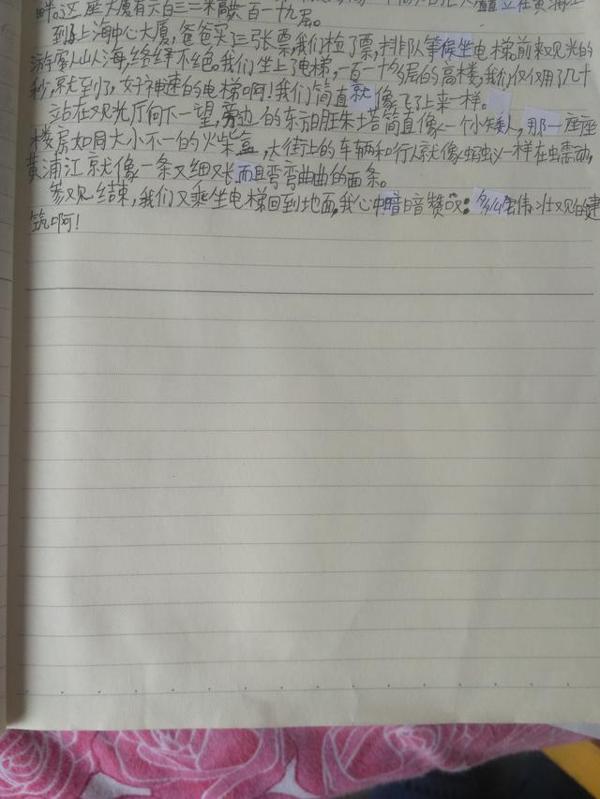 畔。这座大厦有六百三二米高,共一百一十九层。
到了上海中心大厦,爸爸买了三张票,我们检了票,排队等候坐电梯。前来观光的
游客人山人海,络绎不绝。我们坐上了电梯,一百一十多层的高楼,我们仅仅用了几十
秒,就到了,好神速的电梯啊!我们简直就像飞了上来一样。
站在观光厅向下一望,旁边的东方明珠塔简直像一个小矮人,那一座座
楼房如同大小不一的火柴盒,大街上的车辆和行人就像蚂蚁一样在蠕动,
黄浦江就像一条又细又长而且弯弯曲曲的面条。
参观结束,我们又乘坐电梯回到地面,我心中暗暗赞叹:多么雄伟壮观的建
筑啊!